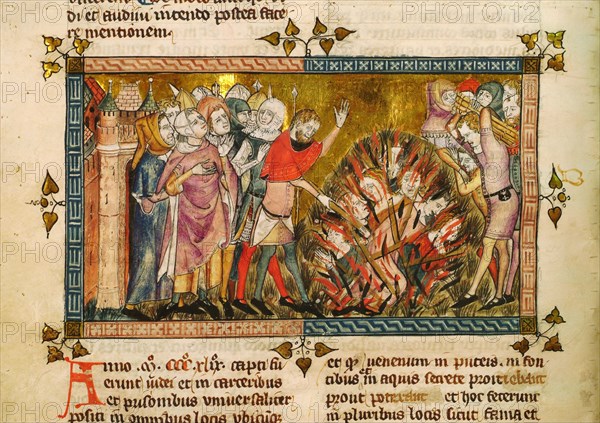 di et audiui intendo postea face
re mentionem
Anno .M. CCC. XLIX. capti fu
erunt iudei et in carceribus
et prisonibus vniuersaliter
positi in omnibus locis vbicūq;
et q̄ venenum in puteis. in fon
tibus et in aquis secrete proitiebāt
prout poterant et hoc fecerunt
in pluribus locis sicut fama et